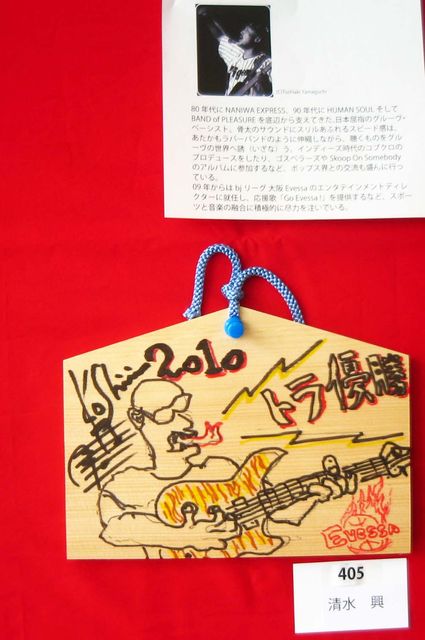 ©Toshiaki Yamaguchi
80 年代に NANIWA EXPRESS、90 年代に HUMAN SOUL そして
BAND of PLEASURE を底辺から支えてきた、日本屈指のグルーヴ・
ベーシスト。骨太のサウンドにスリルあふれるスピード感は、
あたかもラバーバンドのように伸縮しながら、聴くものをグル
ーヴの世界へ誘（いざな）う。インディーズ時代のコブクロの
プロデュースをしたり、ゴスペラーズや Skoop On Somebody
のアルバムに参加するなど、ポップス界との交流も盛んに行っ
ている。
09 年からは bj リーグ大阪 Evessa のエンタテインメントディレ
クターに就任し、応援歌「Go Evessa!」を提供するなど、スポー
ツと音楽の融合に積極的に尽力を注いている。
2010
トラ優勝
EVESSA
405
清水 興